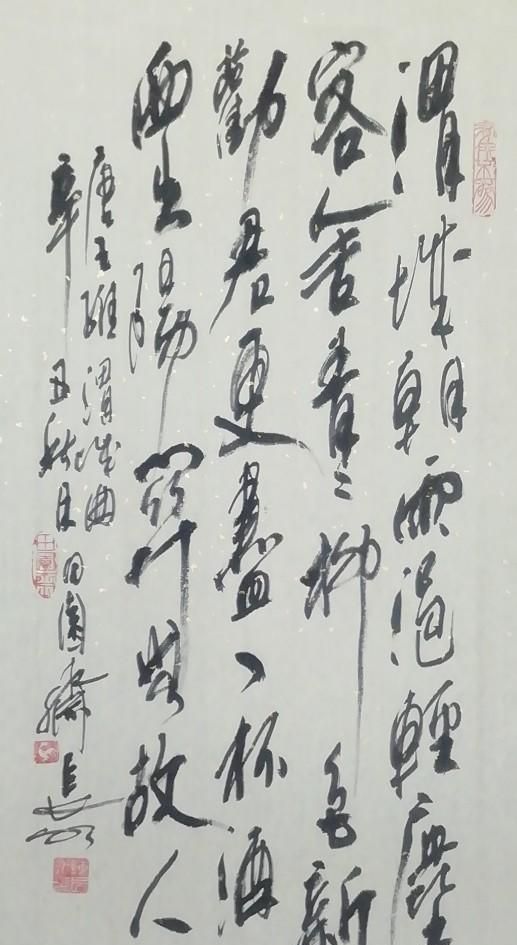 渭城朝雨浥輕塵
客舍青々柳色新
勸君更盡一杯酒
西出陽關無故人
唐王維渭城曲
辛丑秋月田園齋